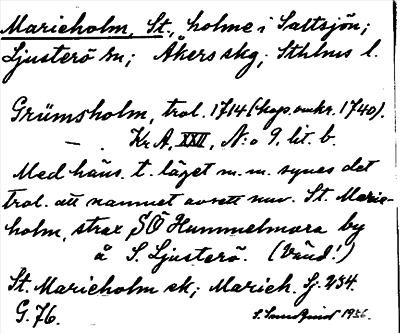 Marieholm, St., holme i Saltsjön;
Ljusterö sn; Åkers skg; Sthlms l.
Grümsholm, trol. 1714 (kop. omkr. 1740).
— . Kr.A, XXII, N:o 9, lit. b.
Med häns. t. läget m. m. synes det
trol. att namnet avsett nuv. St. Marie-
holm, strax SÖ Hummelmora by
å S. Ljusterö. (Vänd!)
St. Marieholm ek; Marieh. Sj. 234.
G. 76. 1936.